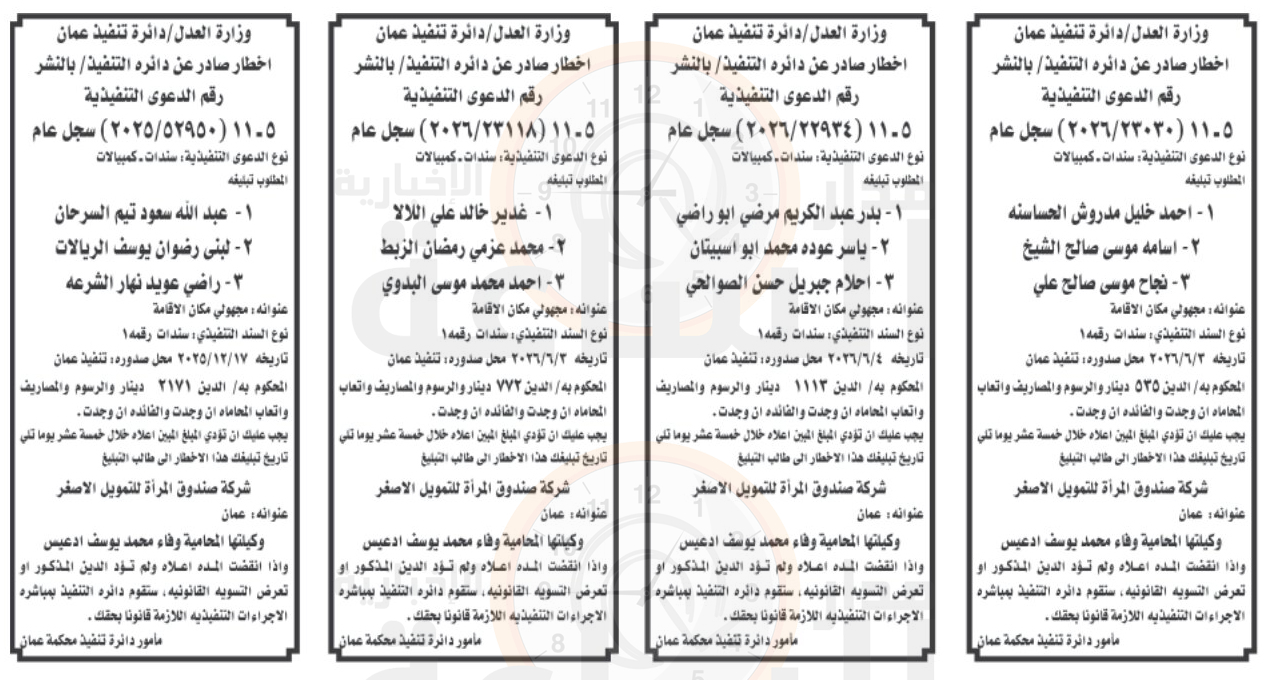 وزارة العدل/دائرة تنفيذ عمان
اخطار صادر عن دائره التنفيذ/ بالنشر
رقم الدعوى التنفيذية
١١ـ٥ (٢٠٢٦/٢٣٠٣٠) سجل عام
نوع الدعوى التنفيذية: سندات ـ كمبيالات
المطلوب تبليغه
١ - احمد خليل مدروش الحساسنه
٢ - اسامه موسى صالح الشيخ
٣ - نجاح موسى صالح علي
عنوانه: مجهولي مكان الاقامة
نوع السند التنفيذي: سندات رقمه١
تاريخه ٢٠٢٦/٦/٣ محل صدوره: تنفيذ عمان
المحكوم به/ الدين ٥٣٥ دينار والرسوم والمصاريف واتعاب
المحاماه ان وجدت والفائده ان وجدت .
يجب عليك ان تؤدي المبلغ المبين اعلاه خلال خمسة عشر يوما تلي
تاريخ تبليغك هذا الاخطار الى طالب التبليغ
شركة صندوق المرأة للتمويل الاصغر
عنوانه: عمان
وكيلتها المحامية وفاء محمد يوسف ادعيس
واذا انقضت المده اعلاه ولم تؤد الدين المذكور او
تعرض التسويه القانونيه، ستقوم دائره التنفيذ بمباشره
الاجراءات التنفيذيه اللازمة قانونا بحقك .
مأمور دائرة تنفيذ محكمة عمان
وزارة العدل/دائرة تنفيذ عمان
اخطار صادر عن دائره التنفيذ/ بالنشر
رقم الدعوى التنفيذية
١١ـ٥ (٢٠٢٦/٢٢٩٣٤) سجل عام
نوع الدعوى التنفيذية: سندات ـ كمبيالات
المطلوب تبليغه
١ - بدر عبد الكريم مرضي ابو راضي
٢ - ياسر عوده محمد ابو اسبيتان
٣ - احلام جبريل حسن الصوالحي
عنوانه: مجهولي مكان الاقامة
نوع السند التنفيذي: سندات رقمه١
تاريخه ٢٠٢٦/٦/٤ محل صدوره: تنفيذ عمان
المحكوم به/ الدين ١١١٣ دينار والرسوم والمصاريف
واتعاب المحاماه ان وجدت والفائده ان وجدت .
يجب عليك ان تؤدي المبلغ المبين اعلاه خلال خمسة عشر يوما تلي
تاريخ تبليغك هذا الاخطار الى طالب التبليغ
شركة صندوق المرأة للتمويل الاصغر
عنوانه: عمان
وكيلتها المحامية وفاء محمد يوسف ادعيس
واذا انقضت المده اعلاه ولم تؤد الدين المذكور او
تعرض التسويه القانونيه، ستقوم دائره التنفيذ بمباشره
الاجراءات التنفيذيه اللازمة قانونا بحقك .
مأمور دائرة تنفيذ محكمة عمان
وزارة العدل/دائرة تنفيذ عمان
اخطار صادر عن دائره التنفيذ/ بالنشر
رقم الدعوى التنفيذية
١١ـ٥ (٢٠٢٦/٢٣١١٨) سجل عام
نوع الدعوى التنفيذية: سندات ـ كمبيالات
المطلوب تبليغه
١ - غدير خالد علي اللالا
٢ - محمد عزمي رمضان الزبط
٣ - احمد محمد موسى البدوي
عنوانه: مجهولي مكان الاقامة
نوع السند التنفيذي: سندات رقمه١
تاريخه ٢٠٢٦/٦/٣ محل صدوره: تنفيذ عمان
المحكوم به/ الدين ٧٧٢ دينار والرسوم والمصاريف واتعاب
المحاماه ان وجدت والفائده ان وجدت .
يجب عليك ان تؤدي المبلغ المبين اعلاه خلال خمسة عشر يوما تلي
تاريخ تبليغك هذا الاخطار الى طالب التبليغ
شركة صندوق المرأة للتمويل الاصغر
عنوانه: عمان
وكيلتها المحامية وفاء محمد يوسف ادعيس
واذا انقضت المده اعلاه ولم تؤد الدين المذكور او
تعرض التسويه القانونيه، ستقوم دائره التنفيذ بمباشره
الاجراءات التنفيذيه اللازمة قانونا بحقك .
مأمور دائرة تنفيذ محكمة عمان
وزارة العدل/دائرة تنفيذ عمان
اخطار صادر عن دائره التنفيذ/ بالنشر
رقم الدعوى التنفيذية
١١ـ٥ (٢٠٢٥/٥٢٩٥٠) سجل عام
نوع الدعوى التنفيذية: سندات ـ كمبيالات
المطلوب تبليغه
١ - عبد الله سعود تيم السرحان
٢ - لبنى رضوان يوسف الريالات
٣ - راضي عويد نهار الشرعه
عنوانه: مجهولي مكان الاقامة
نوع السند التنفيذي: سندات رقمه١
تاريخه ٢٠٢٥/١٢/١٧ محل صدوره: تنفيذ عمان
المحكوم به/ الدين ٢١٧١ دينار والرسوم والمصاريف
واتعاب المحاماه ان وجدت والفائده ان وجدت .
يجب عليك ان تؤدي المبلغ المبين اعلاه خلال خمسة عشر يوما تلي
تاريخ تبليغك هذا الاخطار الى طالب التبليغ
شركة صندوق المرأة للتمويل الاصغر
عنوانه: عمان
وكيلتها المحامية وفاء محمد يوسف ادعيس
واذا انقضت المده اعلاه ولم تؤد الدين المذكور او
تعرض التسويه القانونيه، ستقوم دائره التنفيذ بمباشره
الاجراءات التنفيذيه اللازمة قانونا بحقك .
مأمور دائرة تنفيذ محكمة عمان